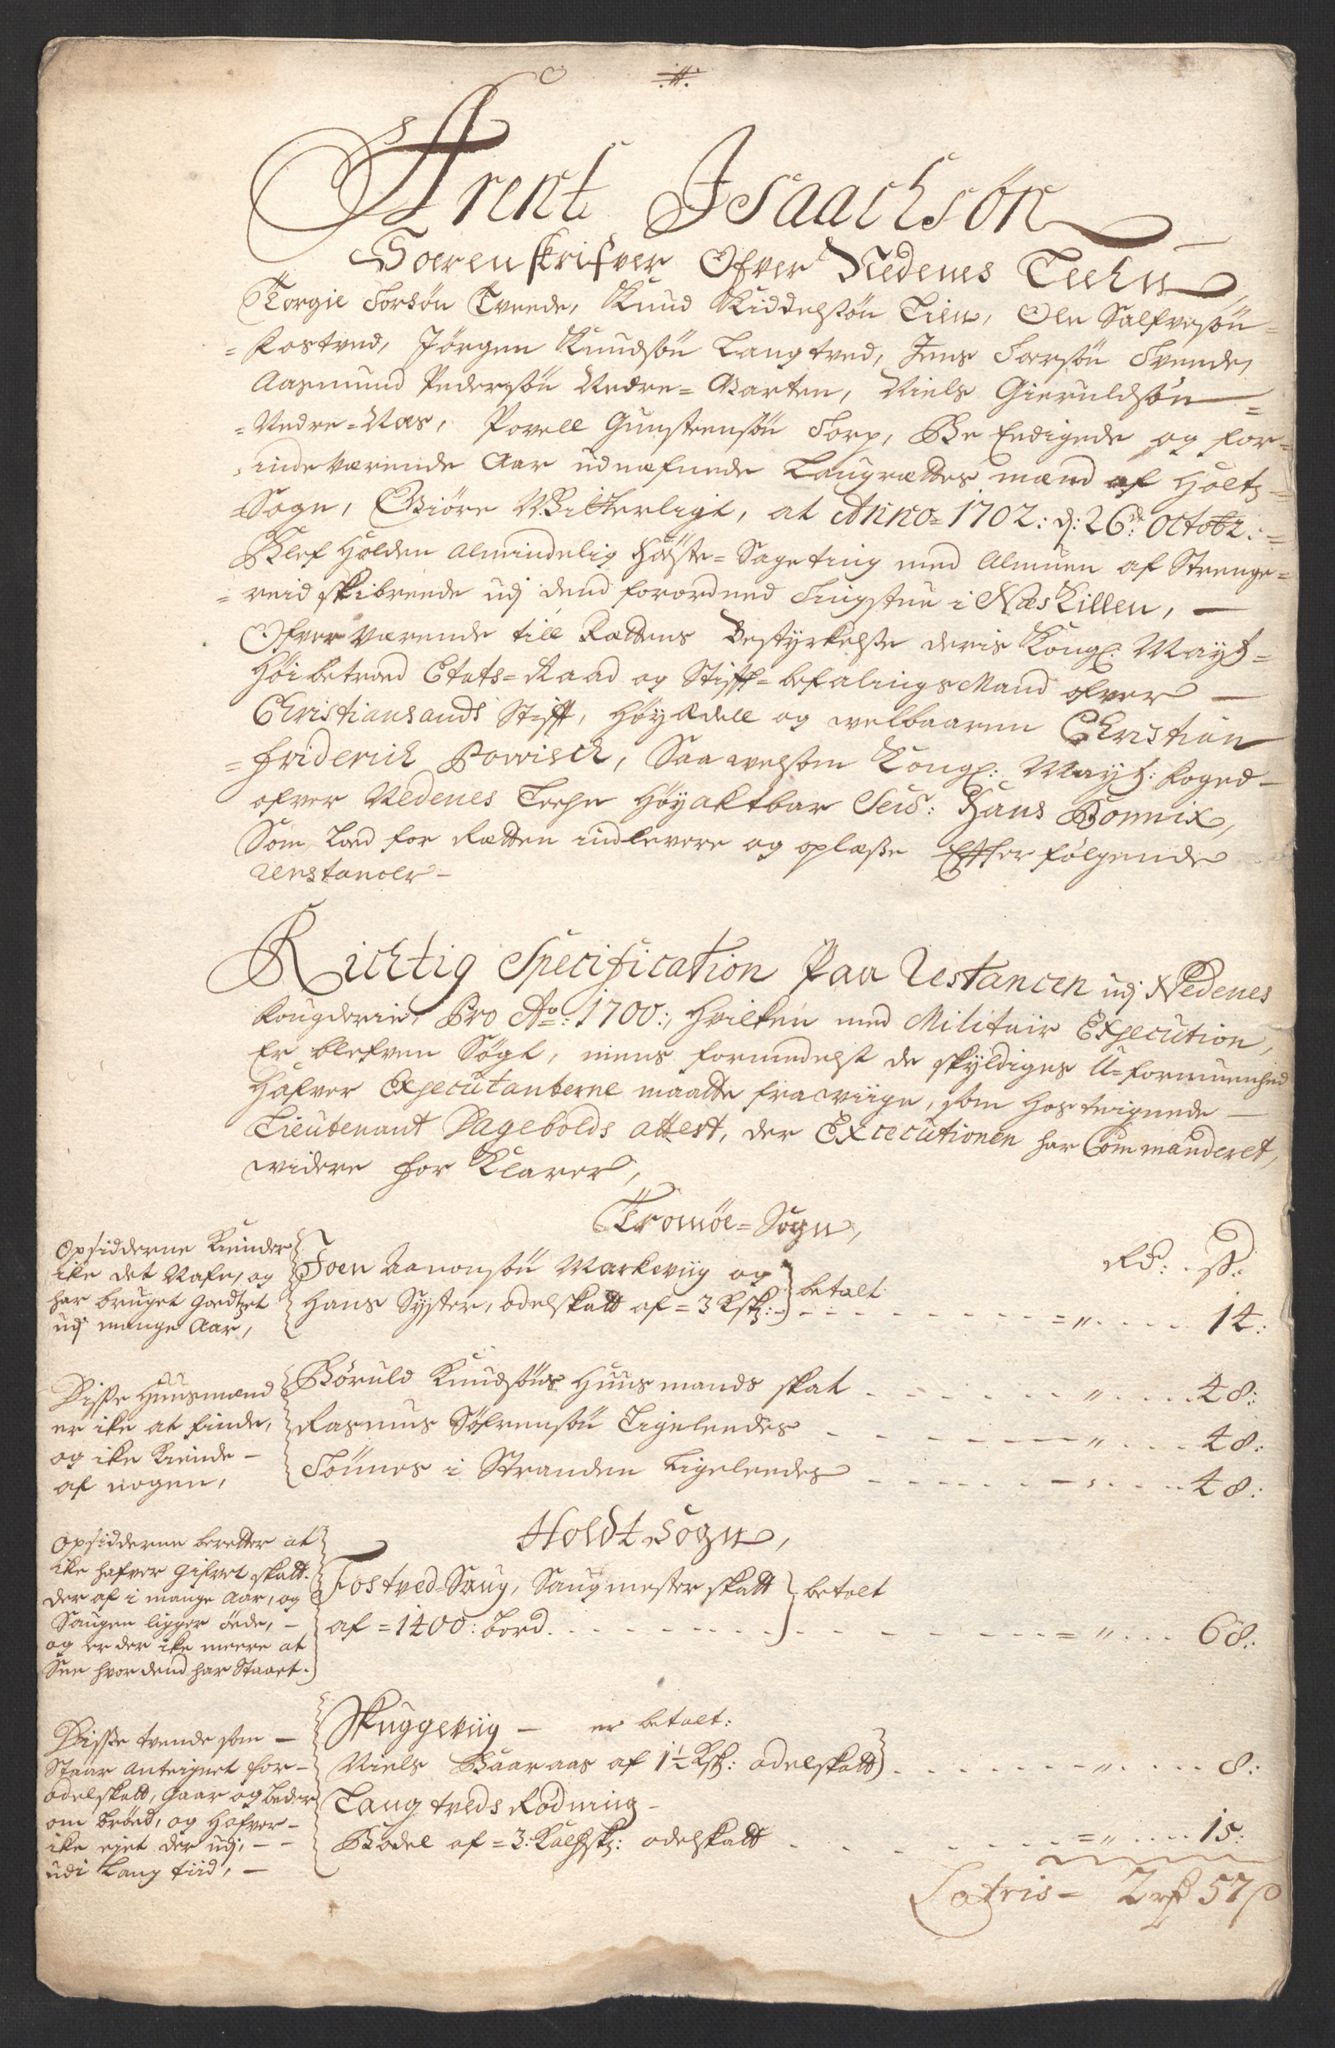 Arent Isaachsøn
Soerenskrifver Ofver Nedenes Leehn
Torgie Torsøn Tveede, Knud Kiddelsøn Lien, Ole Salfvesøn =
= Fostved, Jørgen Knudsøn Langtved, Jens Torsøn Tvende,
Aasmund Pedersøn Nedre= Garten, Niels Gieruldsøn =
= Nedre=Næs, Povell Gunstensøn Torp, Be Eedigede og for=
indeværende Aar udnæfnede Laugrættes mænd af Holtz=
Sogn, Giøre Witterligt, at Anno= 1702: d: 26de: Octobr: =
Blef Holden Almindelig Høste= Sageting med Almuen af Strenge=
= reid skibreede udj dend forordned Tingstue i Næs Killen, —
Ofver Værende till Rættens Bestyrkelse deris Kongl: Mayts=
Høibetroed Etats=Raad og Stifft=befalings Mand ofver —
Christiansands Stifft, Høyædell og welbaaren Christian
= Friderich Powisch, Saa welsom Kongl: Mayts: foged —
ofver Nedenes Leehn Høyaktbar Seig: Hans Bonnix,
Som Loed for Rætten indlevere og oplæsse Effterfølgende
Restancer —
Richtig Specification Paa Restancen udj Nedenes
fougderie, Pro Ao: 1700:, Hvilken med Militair Execution,
Er blefven Søgt, mens formedelst de skyldiges U=formuenhed
Hafver Executanterne maatte fra wiige, som Hostegnede —
Lieutenant Pagebolds attest, der Executionen har Commanderet,
widere forklarer,
Tromøe= Sogn,
Rd: . ß:
Opsidderne Kiender
ike det Nafn, og
har bruget Goedtzet
udj mange Aar,
Joen Aanonsøn Markeviig og
Hans Syster, odelskatt af = 3 Ksk: } betalt . . . = „ . . . . 14:
Disse Huusmænd
er ike at finde,
og ike Kiende —
af nogen,
Børuld Knudsøns Huusmands skat . . . „ . . . . 48:
Rasmus Søfrensøn Ligeleedes . . . „ . . . . 48:
Tønnes i Stranden Ligeleedes . . . . . . . 48:
Holdt Sogn,
Opsidderne beretter at
ike hafver gifvet skatt
der af i mange Aar, og
Saugen ligger øede, —
og er der ike meere at
See hvor dend har Staaet.
Fostved=Saug, Saugmester skatt } betalt
af = 1400: Bord . . . = „ . . . 68:
Disse tvende som —
Staar anteignet for —
odelskatt, gaar og beder
om brød, og Hafver —
ike eyet der udj, —
udi Lang tiid, —
Skuggeviig — er betalt:
Niels Baaraas af 1½ Ksk: odelskatt . . . „ . . . . 8:
Langtveds Rødning —
Bodel af = 3: Kalfsk: odelskatt . . . = „ . . . . 15:
Latris — 2 rd 57 ß